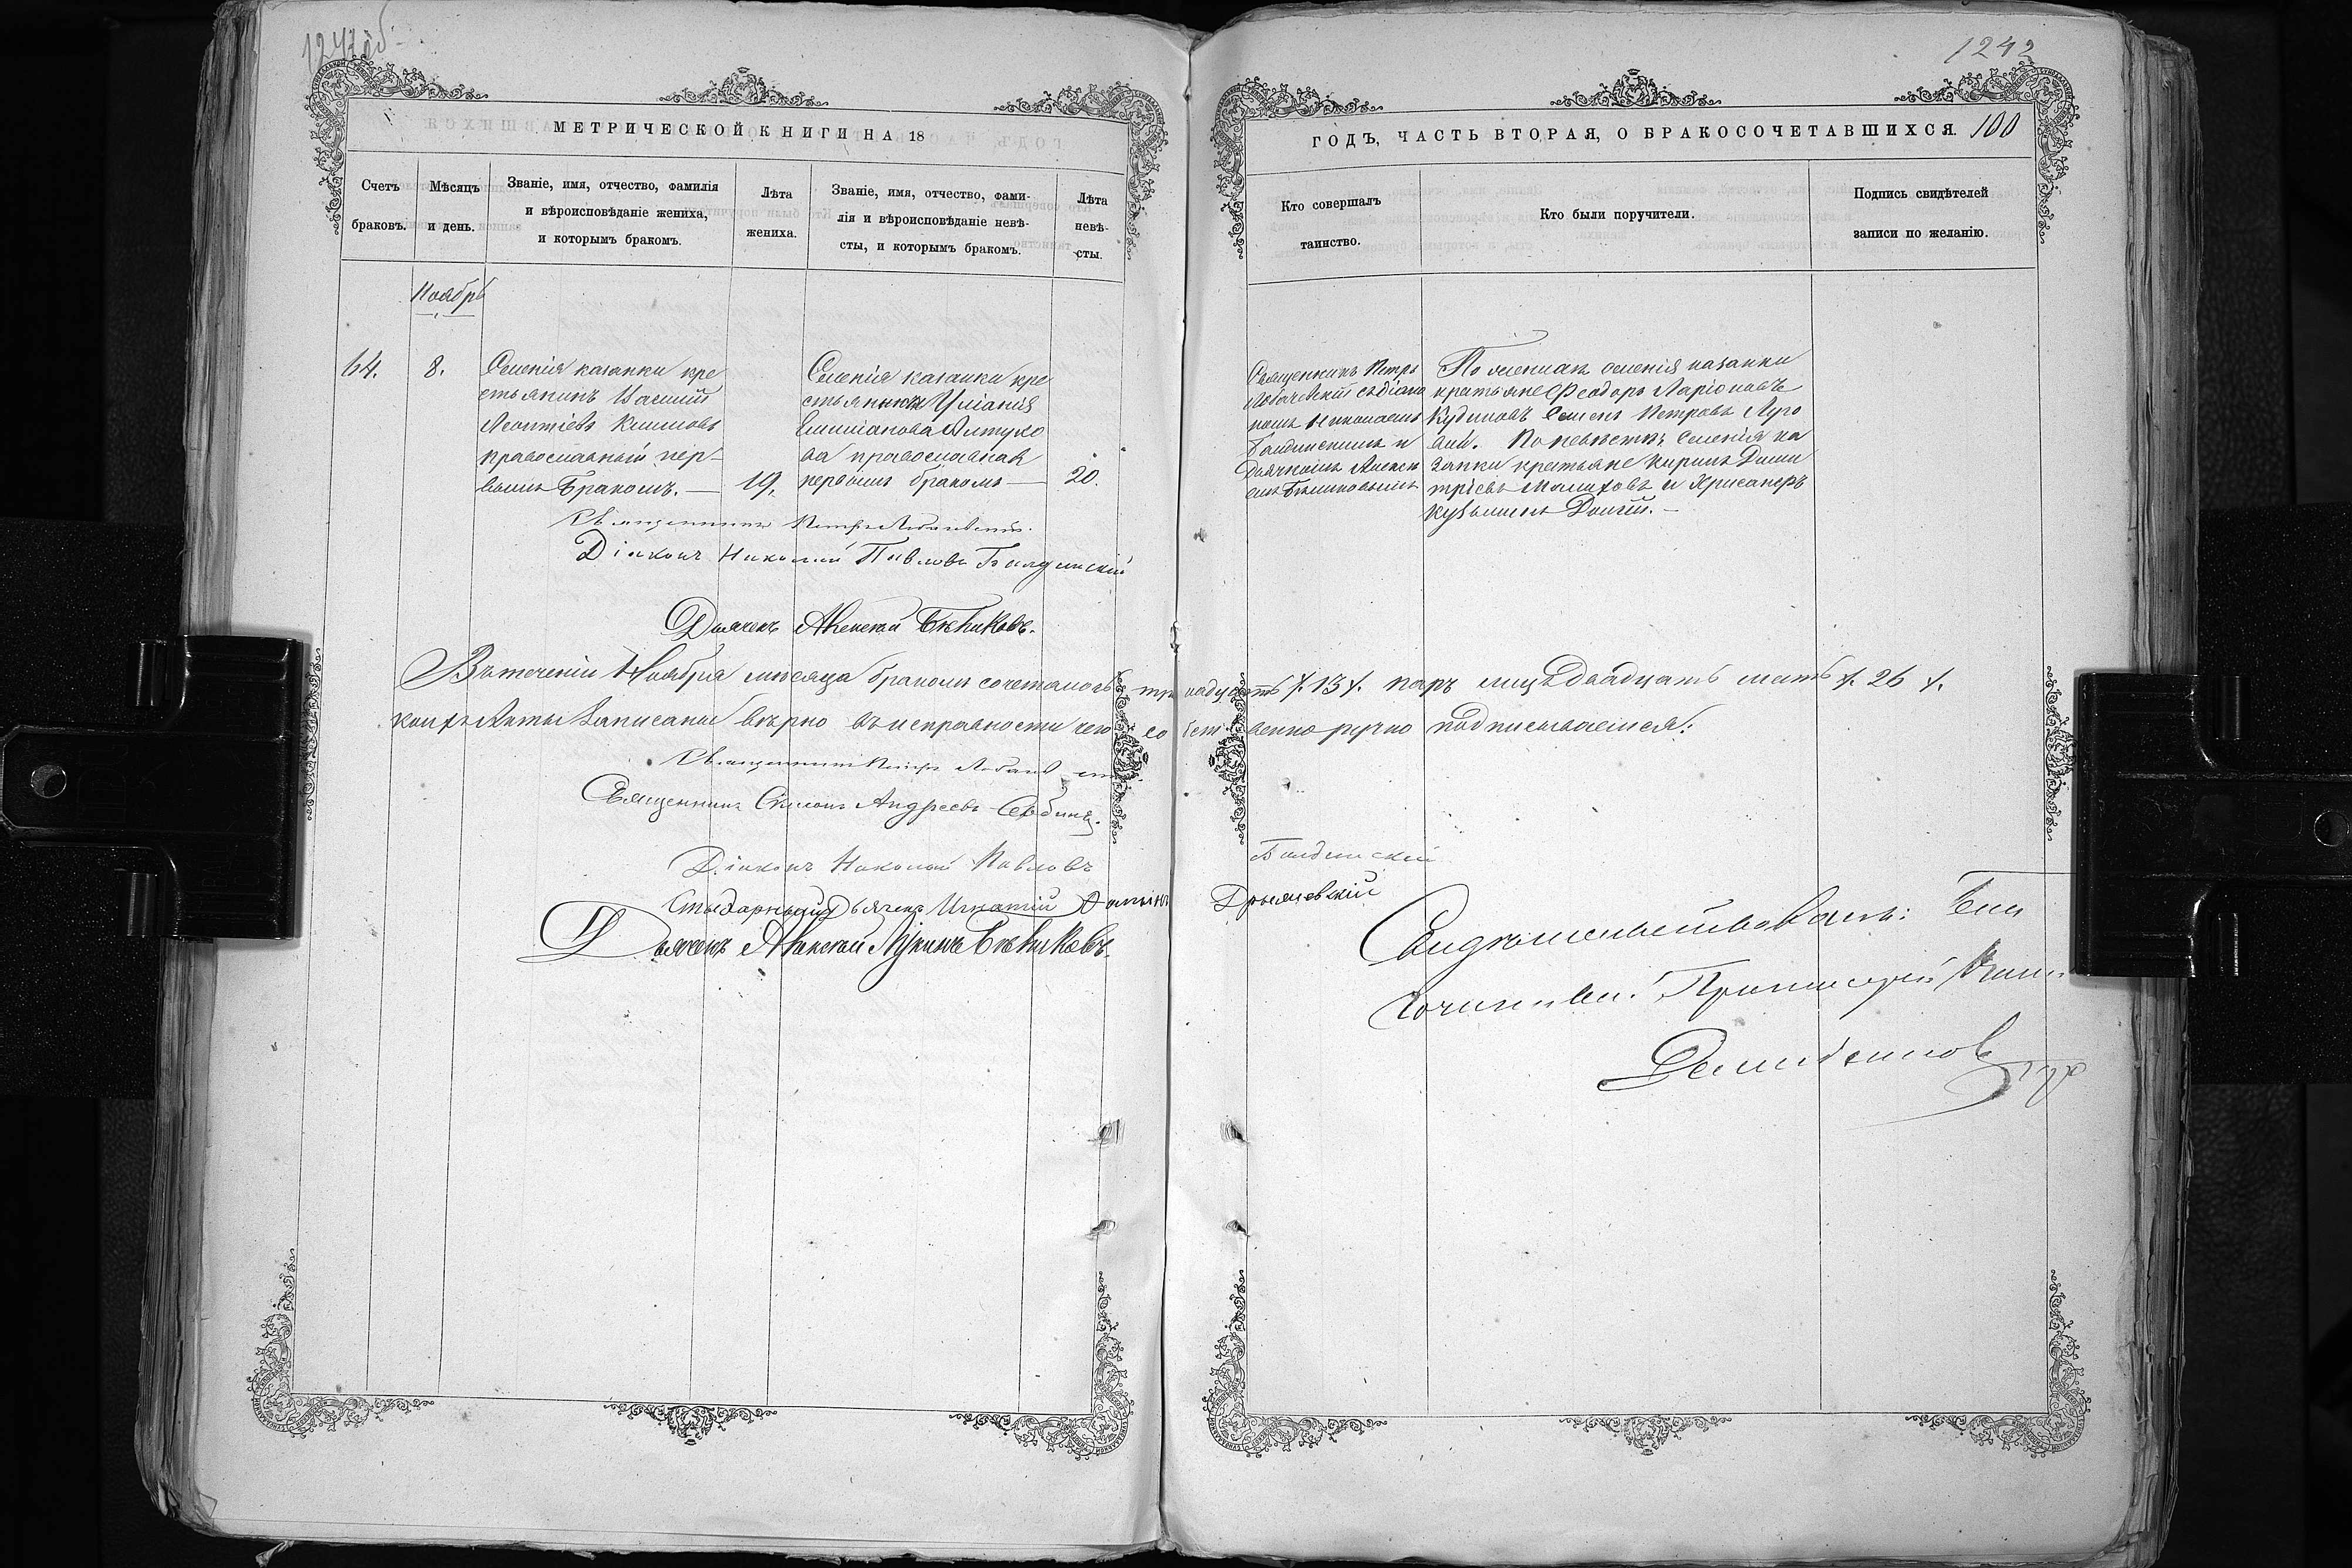 1241об
МЕТРИЧЕСКОЙ КНИГИ НА 18
Счетъ браковъ.
Мѣсяцъ и день.
Званіе, имя, отчество, фамилія
и вѣроисповѣданіе жениха,
и которымъ бракомъ.
Лѣта жениха.
Званіе, имя, отчество, фами-
лія и вѣроисповѣданіе невѣ-
сты, и которымъ бракомъ.
Лѣта невѣ-
сты.
Ноябрь
64.
8.
Селенія казанки кре
стьянинъ Василій
Леонтіевъ Климовъ
православный пер-
вымъ бракомъ. —
19.
Селенія казанки кре
стьянка Уліанія
Емиліанова
ва православная
первымъ бракомъ —
20.
Священникъ Петръ
Діаконъ Николай Павловъ Балдинскій
Дьячекъ Алексѣй
Въ теченіи Ноября мѣсяца бракомъ сочеталось тринадцать /.13/. паръ лицъ двадцать шесть /.26/.
коихъ Акты записаны вѣрно въ исправности чего собственноручно подписываемся:
Священникъ Петръ
Священникъ Симеонъ Андреевъ
Діаконъ Николай Павловъ Балдинскій
Стихарный Дьячекъ Игнатій
Дьячекъ Алексѣй Лукинъ
1242
ГОДЪ, ЧАСТЬ ВТОРАЯ, О БРАКОСОЧЕТАВШИХСЯ. 100
Кто совершалъ
таинство.
Кто были поручители.
Подпись свидѣтелей
записи по желанію.
Священникъ Петръ
съ діако
номъ Николаемъ
Балдинскимъ и
Дьячкомъ Алексѣ
емъ
По женихѣ селенія казанки
крестьяне Феодоръ Ларіоновъ
Кудиновъ Семенъ Петровъ Луго
вой. По невѣстѣ Селенія ка
занки крестьяне Кирилъ Дими
тріевъ и Хрисанфъ
Кузьминъ Долгій. —
Свидѣтельствовалъ: Бла
гочинный Протоіерей